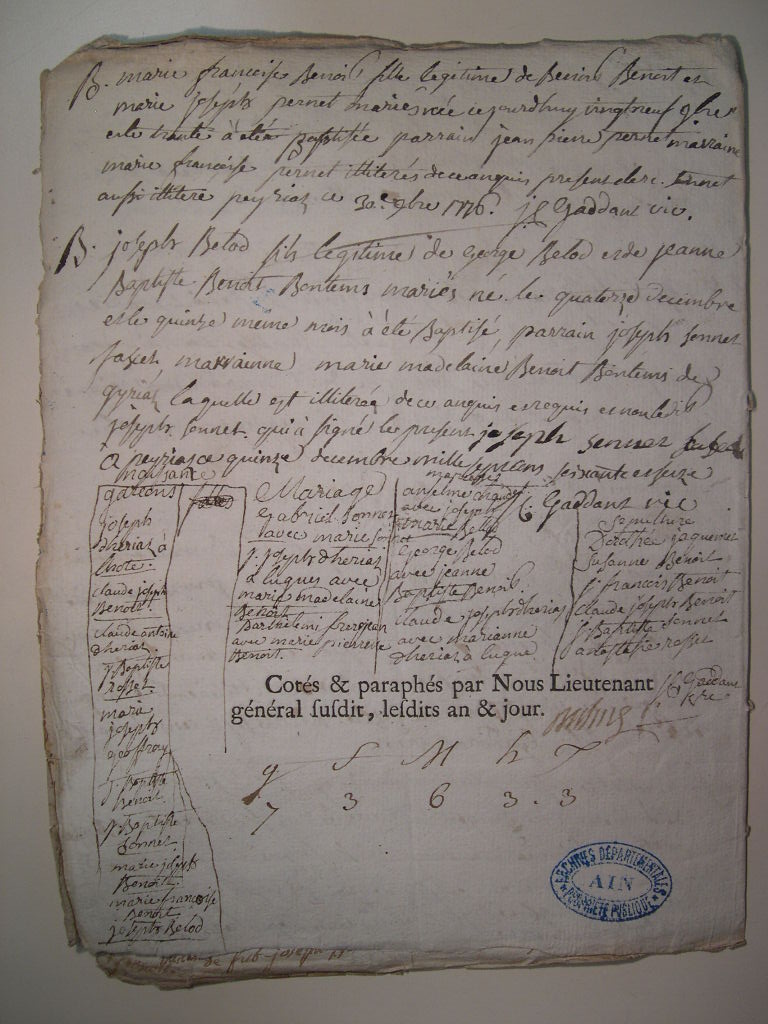 B. marie francoise Benoit fille legitime de Benoit Benoit et
marie josephte pernet mariés née ce jourdhuy vingtneuf 9bre
et le trante à été Baptisée parrain jean pierre pernet marraine
marie francoise pernet illiterés de ce anquis present clerc
aussi illiteré peyriat ce 30e 9bre 1776. Gaddant vic.
B. joseph Belod fils legitime de George Belod et de jeanne
Baptiste Benoit Bontems mariés né le quatorze decembre
et le quinze meme mois à été Baptisé, parrain joseph Sonnet
marraienne marie madelaine Benoit Bontems de
gyriat laquelle est illiterée de ce anquis et requis et non ledit
joseph Sonnet qui à signé le present joseph sonnet
à peyriat ce quinze decembre mille septcens soixante et seize
Gaddant vic
naissance
garcons
filles
joseph
dheriat à
lhote.
claude joseph
Benoit.
claude antoine
dheriat
j. Baptiste
rosset
marie
josephte
geoffray
j. Baptiste
Benoit.
j. Baptiste
Sonnet
marie josephte
Benoit.
marie francoise
Benoit
joseph Belod
Mariage
Gabriel Sonnet
avec marie Sonnet
j. joseph dheriat
à lugues avec
marie madelaine
Benoit
Barthelemi frerejean
avec marie pierrette
Benoit.
mariages
anselme
avec josephte
marie Belod
George Belod
avec jeanne
Baptiste Benoit.
claude joseph dheriat
avec marianne
dheriat à lugue
Sepulture
Dorothée jaquemet
Susanne Benoit
j. francois Benoit
claude joseph Benoit
j. Baptiste Sonnet
rosset
Gaddant
Cotés & paraphés par Nous Lieutenant
général susdit, lesdits an & jour.
g f M h T
7 3 6 3. 3
ARCHIVES DÉPARTEMENTALES
AIN
PROPRIÉTÉ PUBLIQUE